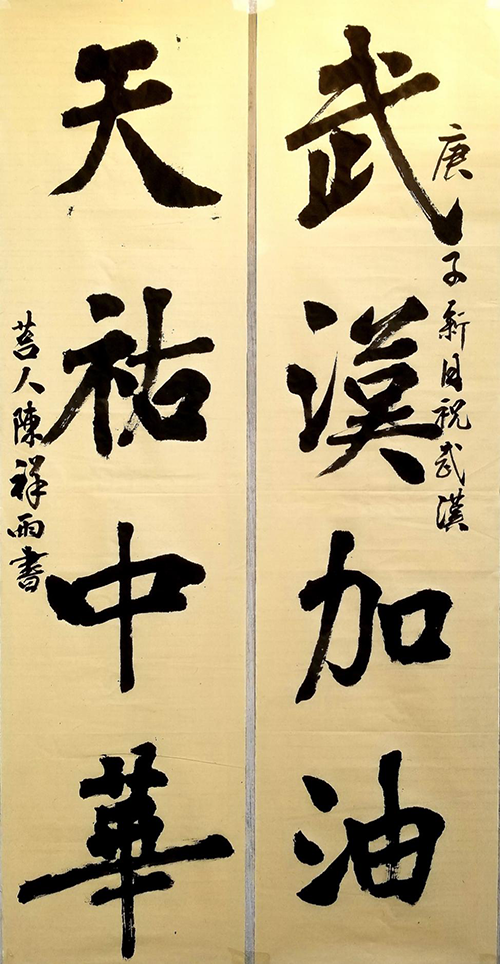 庚子新月祝武漢
武漢加油
天祐中華
莒人陳祥雨書